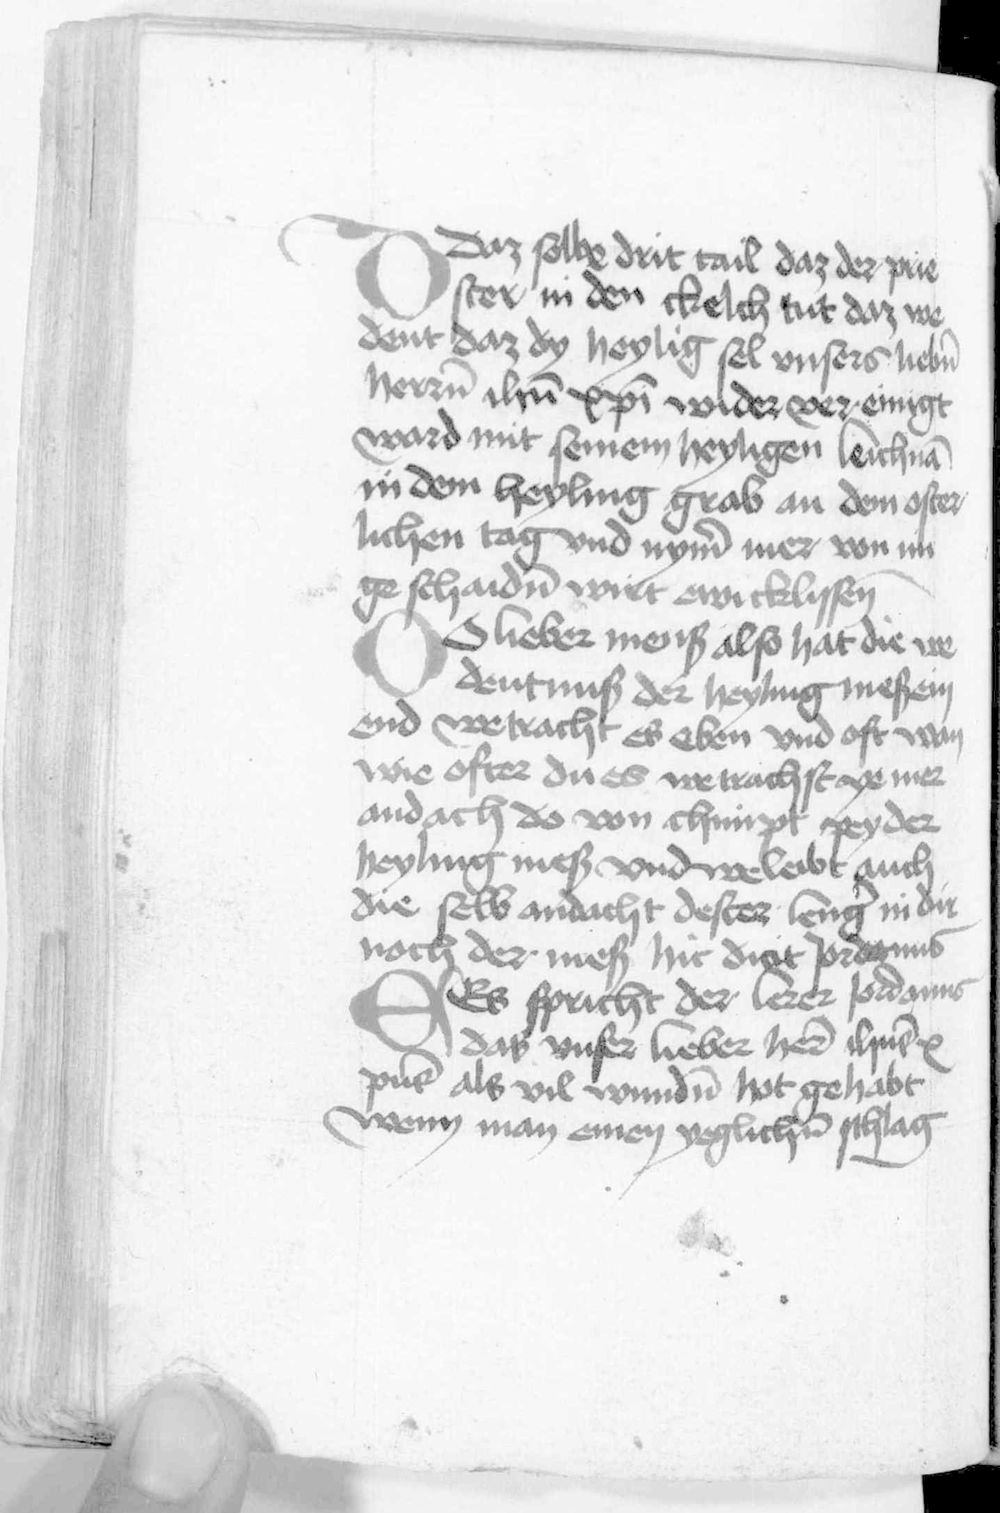 Daz selbe drit tail daz der prie
ster in den ckelch tut daz we
deut daz dy heylig sel vnsers liebn̄
herrn̄ ihū xpī wider ver einigt
ward mit seinem heyligen leichnā
in dem heyling grab an dem oster
lichen tag vnd nym̄ mer von im
ge schaidn̄ wirt ewicklissen
O lieber mensß also hat die we
deutnuß der heyling meß ein
end we tracht es eben vnd oft wan
wie ofter du es we trachst ye mer
andach do von chumpt pey der
heyling meß vnd we leibt auch
die selb andacht dester leng̃ in dir
noch der meß hic dicit Jordanus
Es spricht der lerer Jordanus
das vnser lieber her̄ ihūs x
pūs als vil wundn̄ hot gehabt
wenn man einen yeglichn̄ schlag